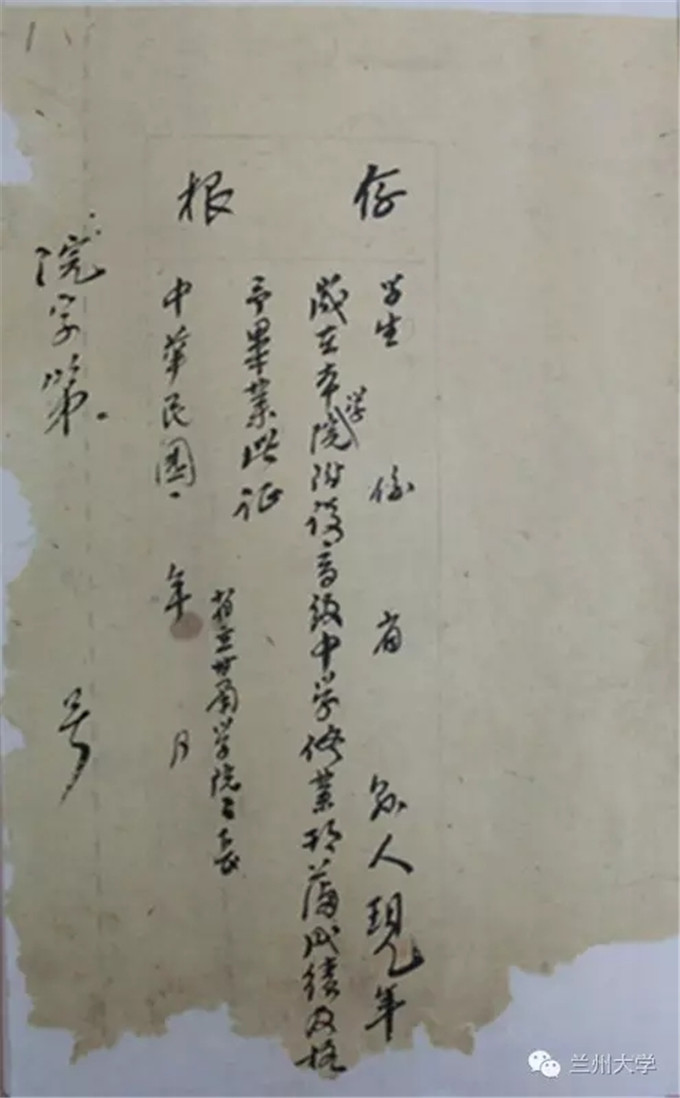 存根
学生 係 省 縣人現年
歲在本学院附設高級中学修業期滿成績及格
予畢業此证
省立甘肅学院院長
中華民國 年 月
院字第 号
兰州大学